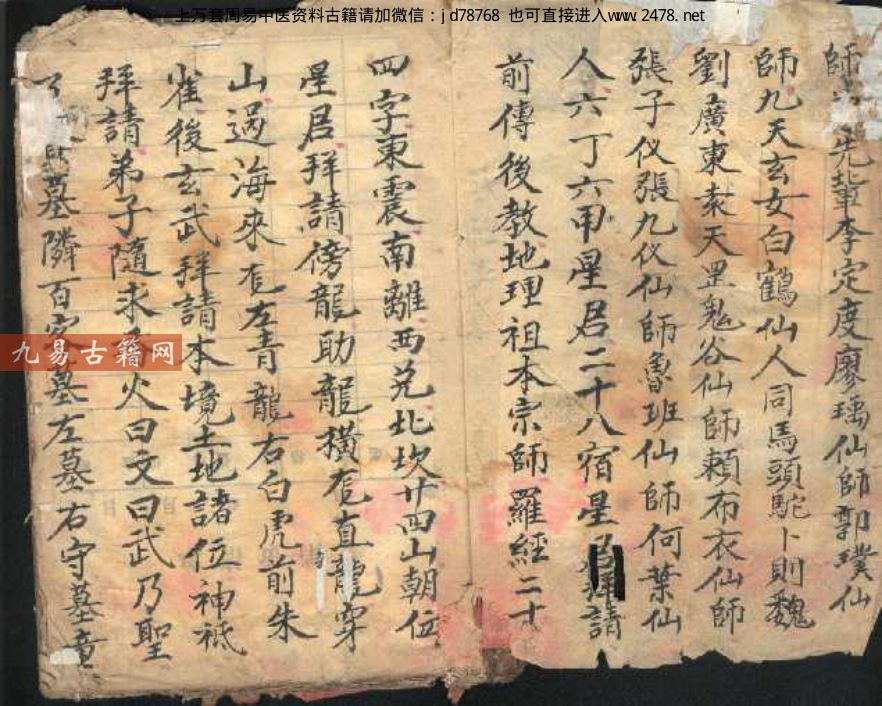 上万套周易中医资料古籍请加微信：jd78768 也可直接进入www.2478.net
師 先輩李定度廖瑀仙師郭璞仙
師九天玄女白鶴仙人同馬頭駝卜則魏
劉廣東袁天罡鬼谷仙師賴布衣仙師
張子仪張九仪仙師魯班仙師何葉仙
人六丁六甲星居二十八宿星居拜請
前傳後教地理祖本宗師羅經二十
四字東震南離西兑北坎廿四山朝位
星居拜請傍龍助龍橫 直龍穿
山過海來 左青龍右白虎前朱
雀後玄武拜請本境土地諸位神祗
拜請弟子隨求香火曰文曰武乃聖
墓隣百家墓左墓右守墓童
九易古籍网